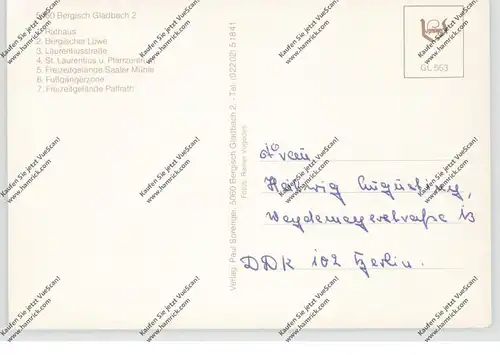 5060 Bergisch Gladbach 2
1. Rathaus
2. Bergischer Löwe
3. Laurentiusstraße
4. St. Laurentius u. Pfarrzentrum
5. Freizeitgelände Saaler Mühle
6. Fußgängerzone
7. Freizeitgelände Paffrath
Verlag: Paul Sprenge, 5060 Bergisch Gladbach 2 - Tel. (02202) 51841
Fotos: Rainer
GL 553
Frau
Hedwig Augustiny,
Weydemeyerstraße 13
DDR 102 Berlin.
Kaufen Sie jetzt VueScan
www.hamrick.com!